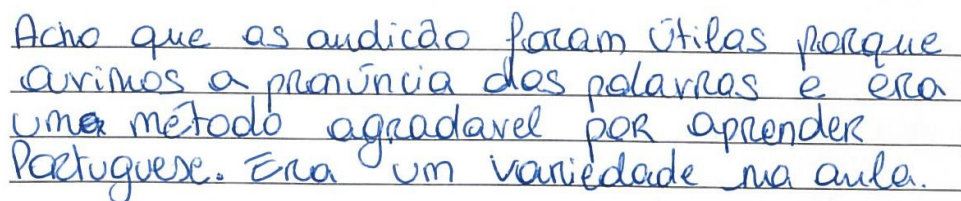 Acho que as audicão foram útilas porque
avimos a pronúncia das palavras e era
um método agradavel por aprender
Portuguese. Era um variedade na aula.